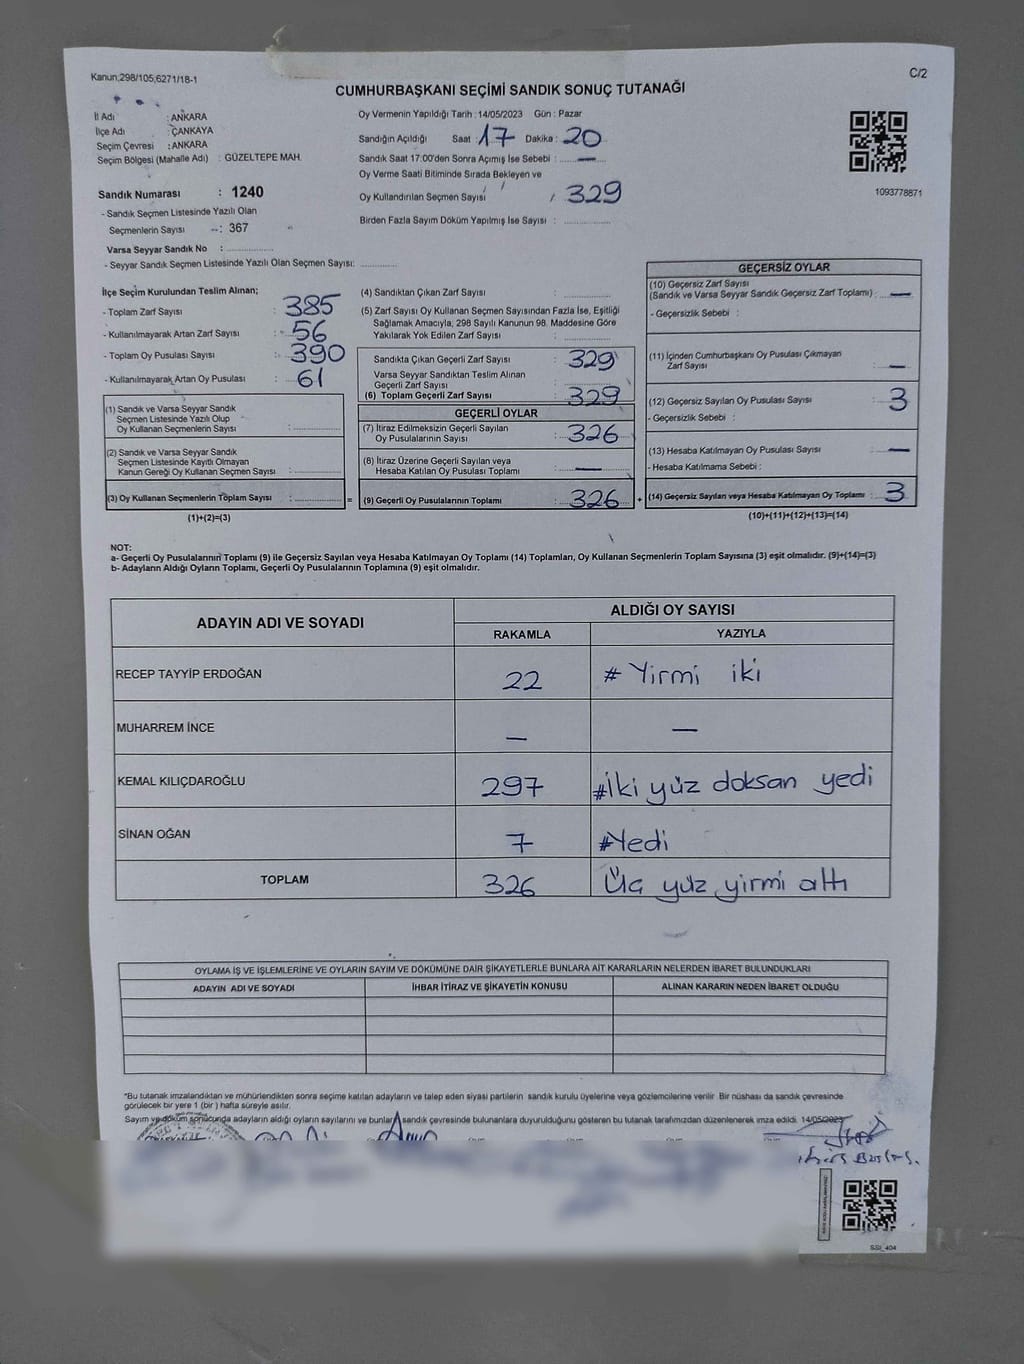 Kanun,298/105,6271/18-1
C/2
CUMHURBAŞKANI SEÇİMİ SANDIK SONUÇ TUTANAĞI
İl Adı : ANKARA
İlçe Adı : ÇANKAYA
Seçim Çevresi : ANKARA
Seçim Bölgesi (Mahalle Adı) : GÜZELTEPE MAH.
Sandık Numarası : 1240
- Sandık Seçmen Listesinde Yazılı Olan
Seçmenlerin Sayısı : 367
Varsa Seyyar Sandık No :
- Seyyar Sandık Seçmen Listesinde Yazılı Olan Seçmen Sayısı:
Oy Vermenin Yapıldığı Tarih : 14/05/2023 Gün : Pazar
Sandığın Açıldığı Saat : 17 Dakika : 20
Sandık Saat 17:00'den Sonra Açımış İse Sebebi : —
Oy Verme Saati Bitiminde Sırada Bekleyen ve
Oy Kullandırılan Seçmen Sayısı : 329
Birden Fazla Sayım Döküm Yapılmış İse Sayısı :
1093778871
İlçe Seçim Kurulundan Teslim Alınan;
- Toplam Zarf Sayısı : 385
- Kullanılmayarak Artan Zarf Sayısı : 56
- Toplam Oy Pusulası Sayısı : 390
- Kullanılmayarak Artan Oy Pusulası : 61
(1) Sandık ve Varsa Seyyar Sandık
Seçmen Listesinde Yazılı Olup
Oy Kullanan Seçmenlerin Sayısı :
(2) Sandık ve Varsa Seyyar Sandık
Seçmen Listesinde Kayıtlı Olmayan
Kanun Gereği Oy Kullanan Seçmen Sayısı :
(3) Oy Kullanan Seçmenlerin Toplam Sayısı :
(1)+(2)=(3)
(4) Sandıktan Çıkan Zarf Sayısı :
(5) Zarf Sayısı Oy Kullanan Seçmen Sayısından Fazla İse, Eşitliği
Sağlamak Amacıyla; 298 Sayılı Kanunun 98. Maddesine Göre
Yakılarak Yok Edilen Zarf Sayısı :
Sandıkta Çıkan Geçerli Zarf Sayısı : 329
Varsa Seyyar Sandıktan Teslim Alınan
Geçerli Zarf Sayısı :
(6) Toplam Geçerli Zarf Sayısı : 329
GEÇERLİ OYLAR
(7) İtiraz Edilmeksizin Geçerli Sayılan
Oy Pusulalarının Sayısı : 326
(8) İtiraz Üzerine Geçerli Sayılan veya
Hesaba Katılan Oy Pusulası Toplamı : —
= (9) Geçerli Oy Pusulalarının Toplamı : 326 +
GEÇERSİZ OYLAR
(10) Geçersiz Zarf Sayısı
(Sandık ve Varsa Seyyar Sandık Geçersiz Zarf Toplamı) : —
- Geçersizlik Sebebi :
(11) İçinden Cumhurbaşkanı Oy Pusulası Çıkmayan
Zarf Sayısı : —
(12) Geçersiz Sayılan Oy Pusulası Sayısı : 3
- Geçersizlik Sebebi :
(13) Hesaba Katılmayan Oy Pusulası Sayısı : —
- Hesaba Katılmama Sebebi :
(14) Geçersiz Sayılan veya Hesaba Katılmayan Oy Toplamı : 3
(10)+(11)+(12)+(13)=(14)
NOT:
a- Geçerli Oy Pusulalarının Toplamı (9) ile Geçersiz Sayılan veya Hesaba Katılmayan Oy Toplamı (14) Toplamları, Oy Kullanan Seçmenlerin Toplam Sayısına (3) eşit olmalıdır. (9)+(14)=(3)
b- Adayların Aldığı Oyların Toplamı, Geçerli Oy Pusulalarının Toplamına (9) eşit olmalıdır.
ADAYIN ADI VE SOYADI
ALDIĞI OY SAYISI
RAKAMLA YAZIYLA
RECEP TAYYİP ERDOĞAN 22 # Yirmi iki
MUHARREM İNCE — —
KEMAL KILIÇDAROĞLU 297 #İki yüz doksan yedi
SİNAN OĞAN 7 #Yedi
TOPLAM 326 Üç yüz yirmi altı
OYLAMA İŞ VE İŞLEMLERİNE VE OYLARIN SAYIM VE DÖKÜMÜNE DAİR ŞİKAYETLERLE BUNLARA AİT KARARLARIN NELERDEN İBARET BULUNDUKLARI
ADAYIN ADI VE SOYADI İHBAR İTİRAZ VE ŞİKAYETİN KONUSU ALINAN KARARIN NEDEN İBARET OLDUĞU
*Bu tutanak imzalandıktan ve mühürlendikten sonra seçime katılan adayların ve talep eden siyasi partilerin sandık kurulu üyelerine veya gözlemcilerine verilir. Bir nüshası da sandık çevresinde
görülecek bir yere 1 (bir) hafta süreyle asılır.
Sayım ve döküm sonucunda adayların aldığı oyların sayılarını ve bunların sandık çevresinde bulunanlara duyurulduğunu gösteren bu tutanak tarafımızdan düzenlenerek imza edildi. 14/05/2023
SSI_404